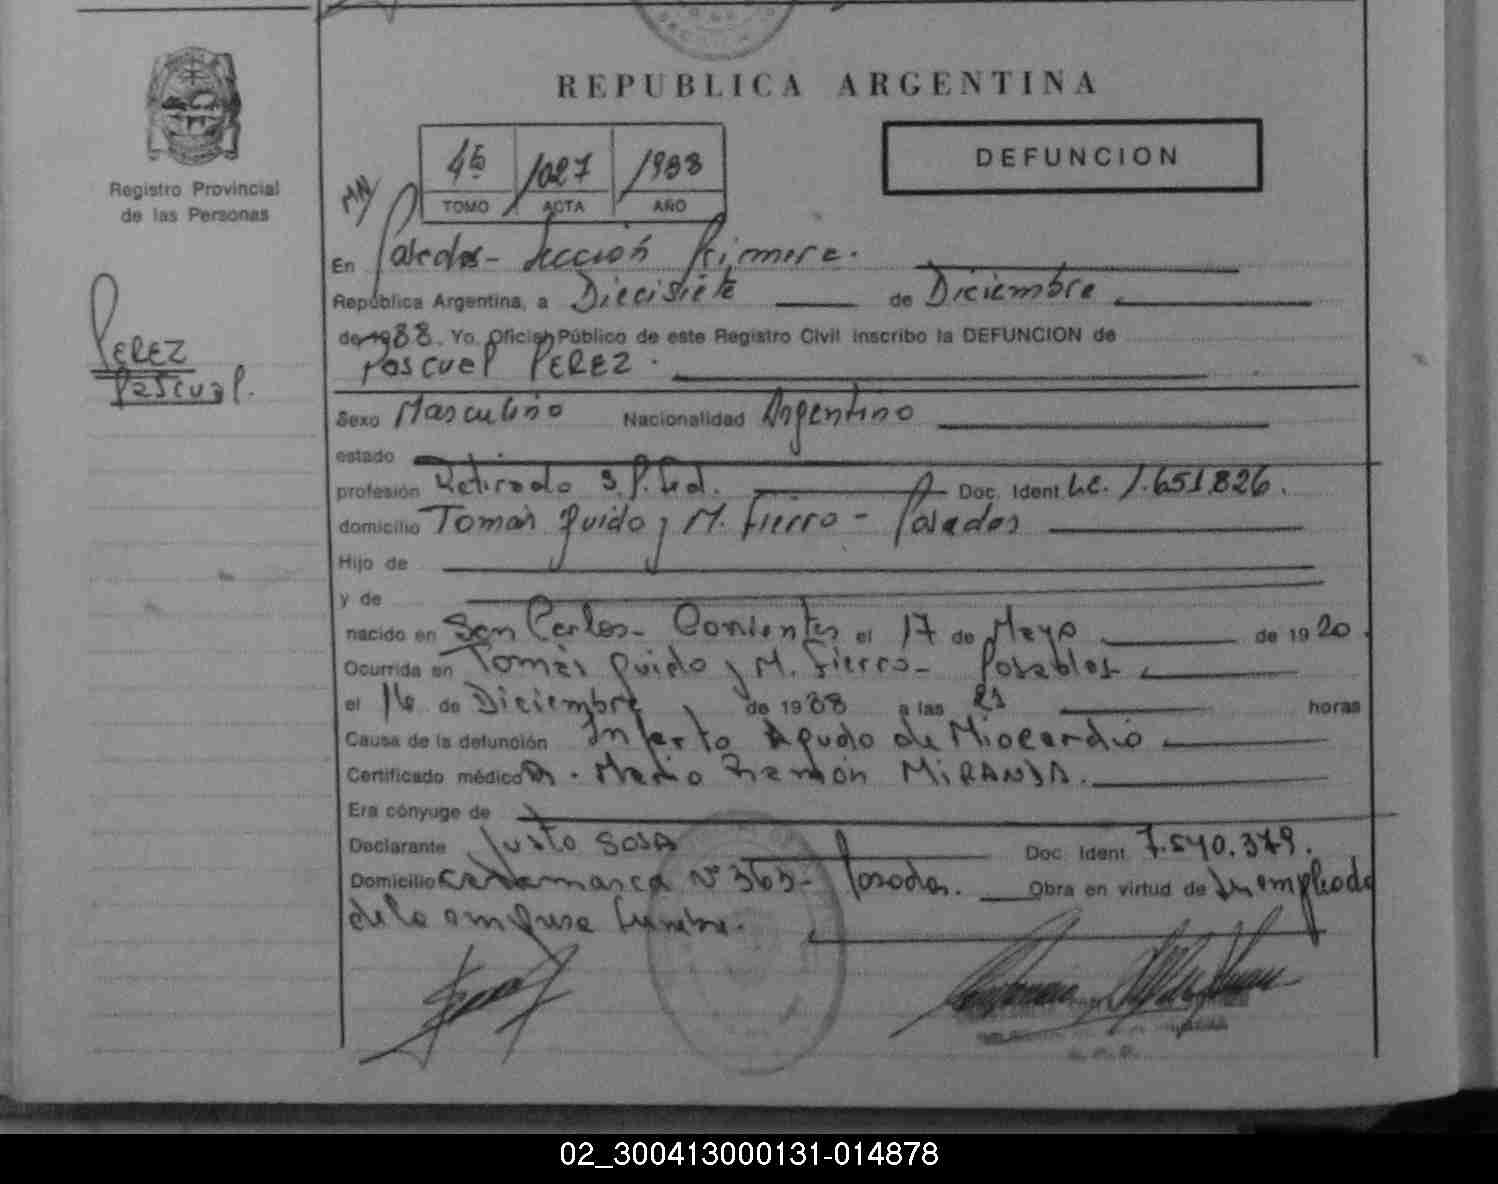 REPUBLICA ARGENTINA
DEFUNCION
Registro Provincial
de las Personas
1027 1988
TOMO ACTA AÑO
En Posadas - Sección Primera.
República Argentina, a Diecisiete de Diciembre
de 1988. Yo, Oficial Público de este Registro Civil inscribo la DEFUNCION de
Pascual PEREZ.
PEREZ
Pascual.
Sexo Masculino Nacionalidad Argentino
estado
profesión Retirado Doc. Ident L.E. 1.651.826.
domicilio Tomás Guido y M. Fierro - Posadas
Hijo de
y de
nacido en San Carlos - Corrientes el 17 de Mayo de 1920.
Ocurrida en Tomás Guido y M. Fierro - Posadas
el 16 de Diciembre de 1988 a las 21 horas
Causa de la defunción Infarto Agudo de Miocardio
Certificado médico Dr. Mario Ramón MIRANDA.
Era cónyuge de
Declarante Justo SOSA Doc. Ident 7.540.379.
Domicilio Catamarca Nº 363 - Posadas. Obra en virtud de Ser empleado
de la empresa fúnebre.
02_300413000131-014878